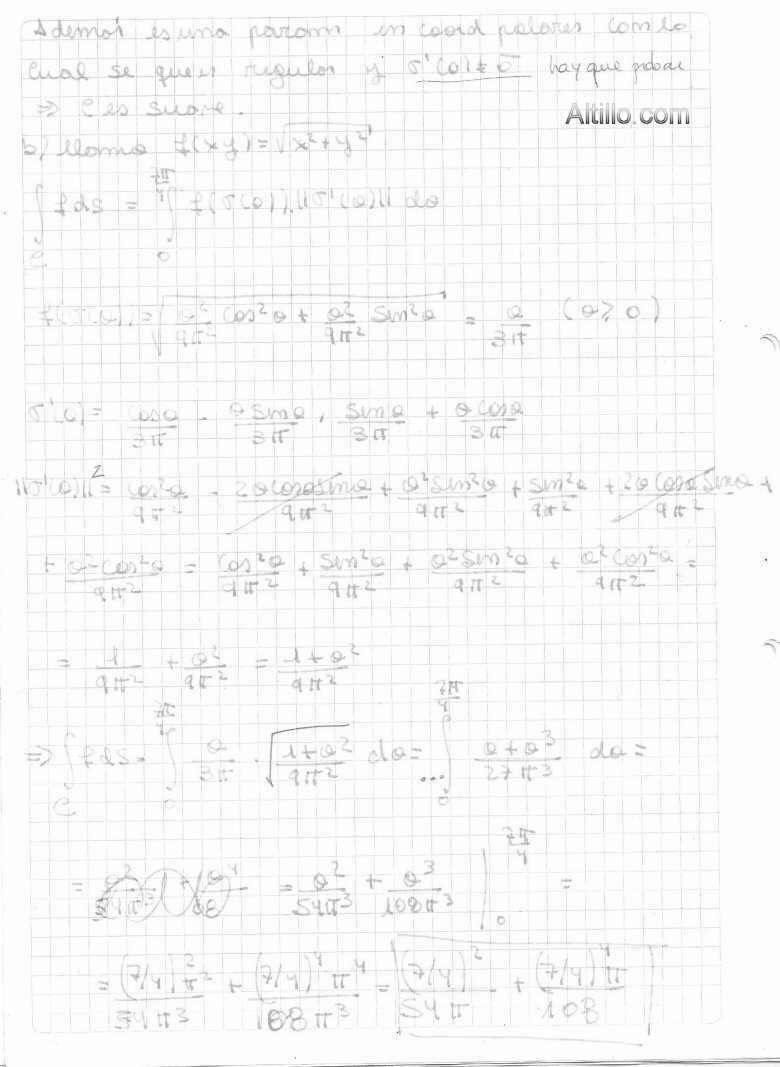 Además es una param en coord polares con lo
cual se que es regular y σ'(θ) ≠ 0 hay que probar
⇒ C es suave.
Altillo.com
b) llamo f(xy) = √(x² + y²)
∫_C f ds = ∫_0^{7π/4} f(σ(θ)).||σ'(θ)|| dθ
f(σ(θ)) = √(θ²/9π² cos²θ + θ²/9π² sin²θ) = θ/3π (θ ≥ 0)
σ'(θ) = cosθ/3π - θ sinθ/3π , sinθ/3π + θ cosθ/3π
||σ'(θ)||² = cos²θ/9π² - 2θ cosθ sinθ/9π² + θ² sin²θ/9π² + sin²θ/9π² + 2θ cosθ sinθ/9π² +
+ θ² cos²θ/9π² = cos²θ/9π² + sin²θ/9π² + θ² sin²θ/9π² + θ² cos²θ/9π² =
= 1/9π² + θ²/9π² = (1 + θ²)/9π²
⇒ ∫_C f ds = ∫_0^{7π/4} θ/3π . √((1 + θ²)/9π²) dθ = ... ∫_0^{7π/4} (θ + θ³)/27π³ dθ =
= θ²/54π³ + θ³/108π³ |_0^{7π/4} =
= (7/4)² π²/54π³ + (7/4)⁴ π⁴/108π³ = (7/4)²/54π + (7/4)⁴ π/108